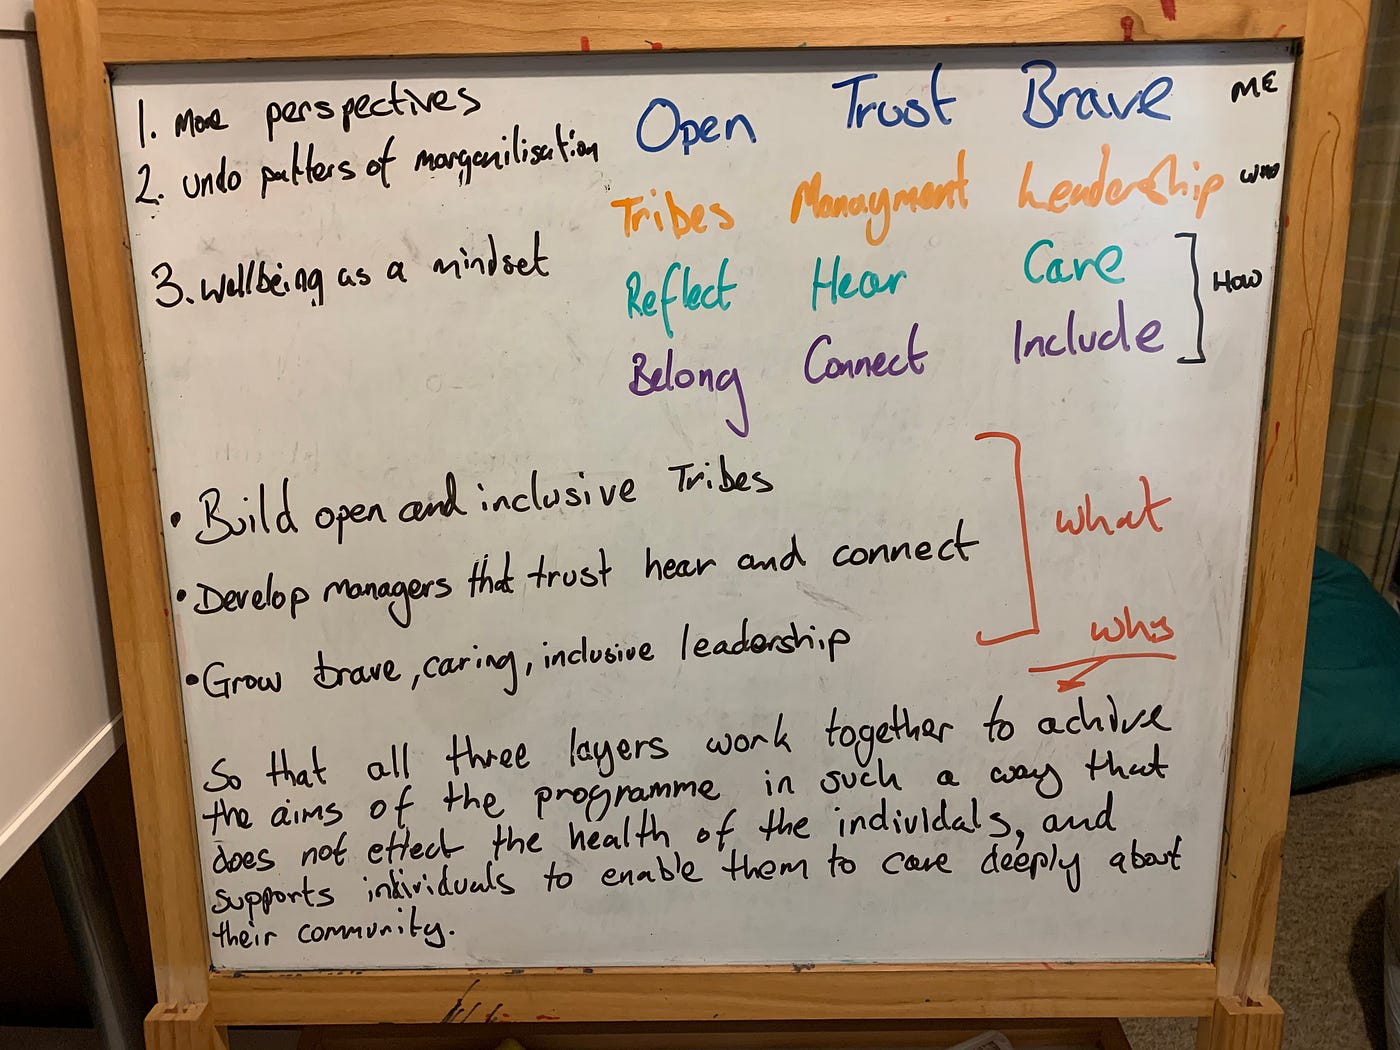 1. More perspectives
2. undo patters of marganilisation
3. wellbeing as a mindset
Open Trust Brave ME
Tribes Managment Leadership WHO
Reflect Hear Care
HOW
Belong Connect Include
• Build open and inclusive Tribes
• Develop managers that trust hear and connect
• Grow brave, caring, inclusive leadership
what
why
So that all three layers work together to achive
the aims of the programme in such a way that
does not effect the health of the individals, and
supports individuals to enable them to care deeply about
their community.